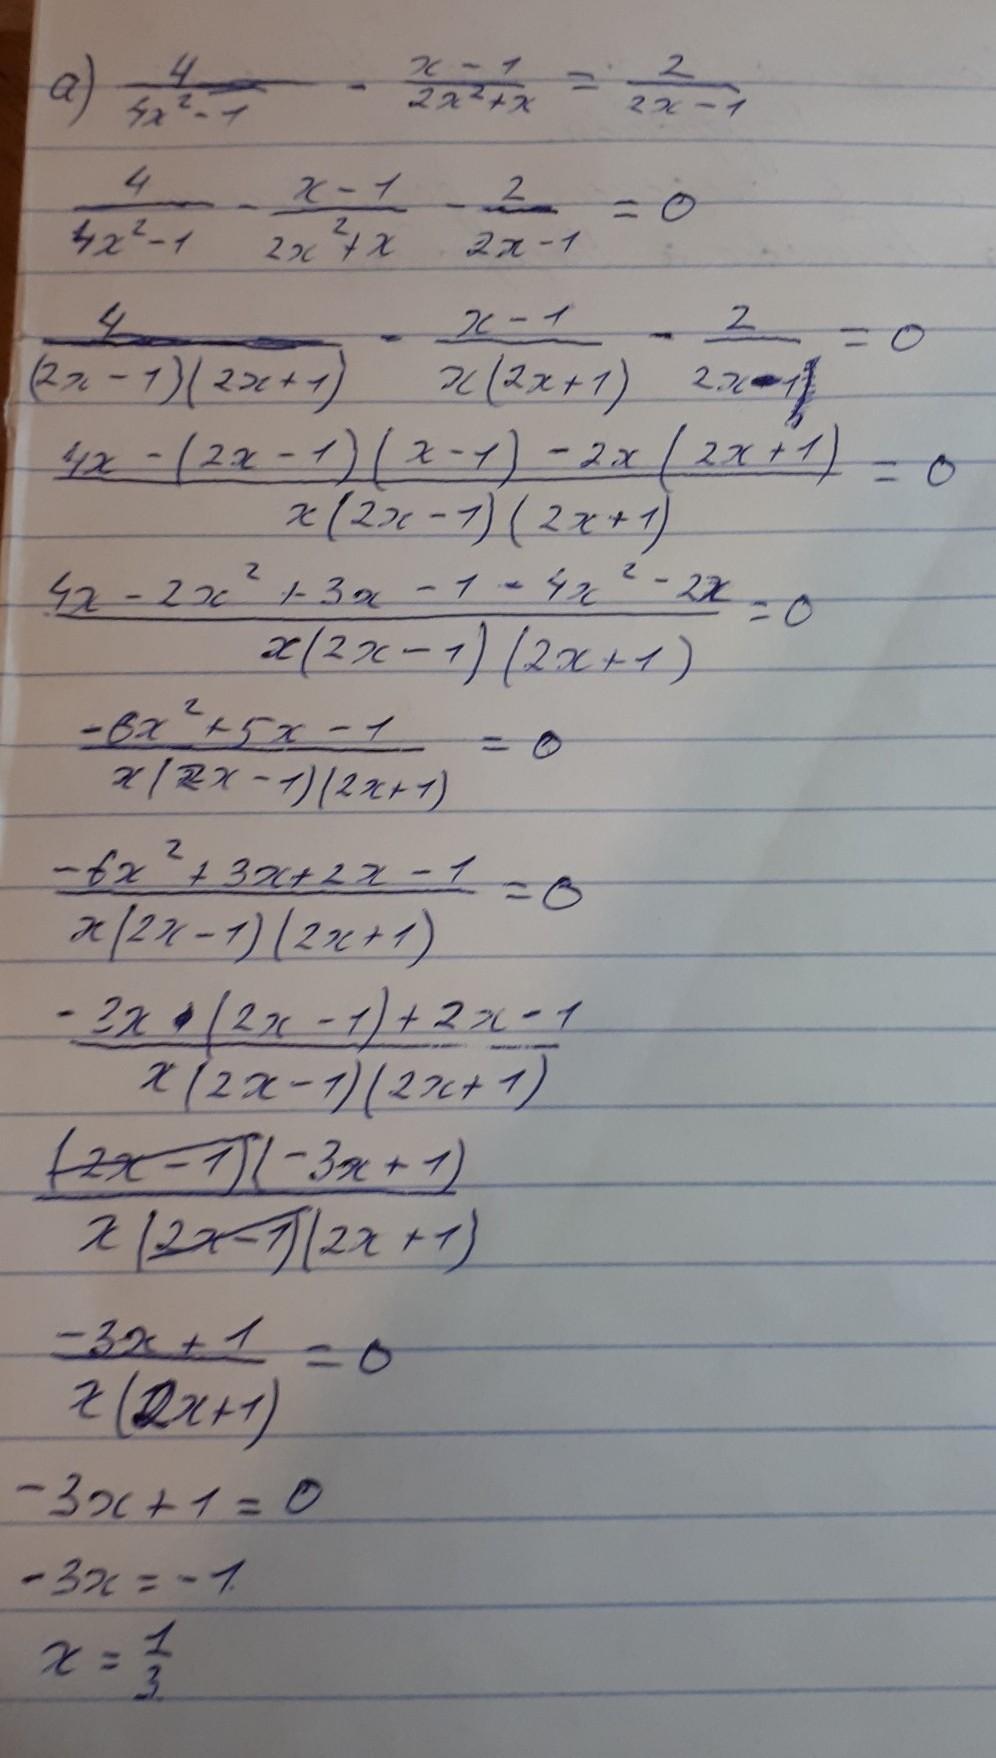 a) 4/(4x²-1) - (x-1)/(2x²+x) = 2/(2x-1)
4/(4x²-1) - (x-1)/(2x²+x) - 2/(2x-1) = 0
4/((2x-1)(2x+1)) - (x-1)/(x(2x+1)) - 2/(2x-1) = 0
(4x-(2x-1)(x-1)-2x(2x+1))/(x(2x-1)(2x+1)) = 0
(4x-2x²+3x-1-4x²-2x)/(x(2x-1)(2x+1)) = 0
(-6x²+5x-1)/(x(2x-1)(2x+1)) = 0
(-6x²+3x+2x-1)/(x(2x-1)(2x+1)) = 0
(-3x·(2x-1)+2x-1)/(x(2x-1)(2x+1))
((2x-1)(-3x+1))/(x(2x-1)(2x+1))
(-3x+1)/(x(2x+1)) = 0
-3x+1=0
-3x=-1
x=1/3